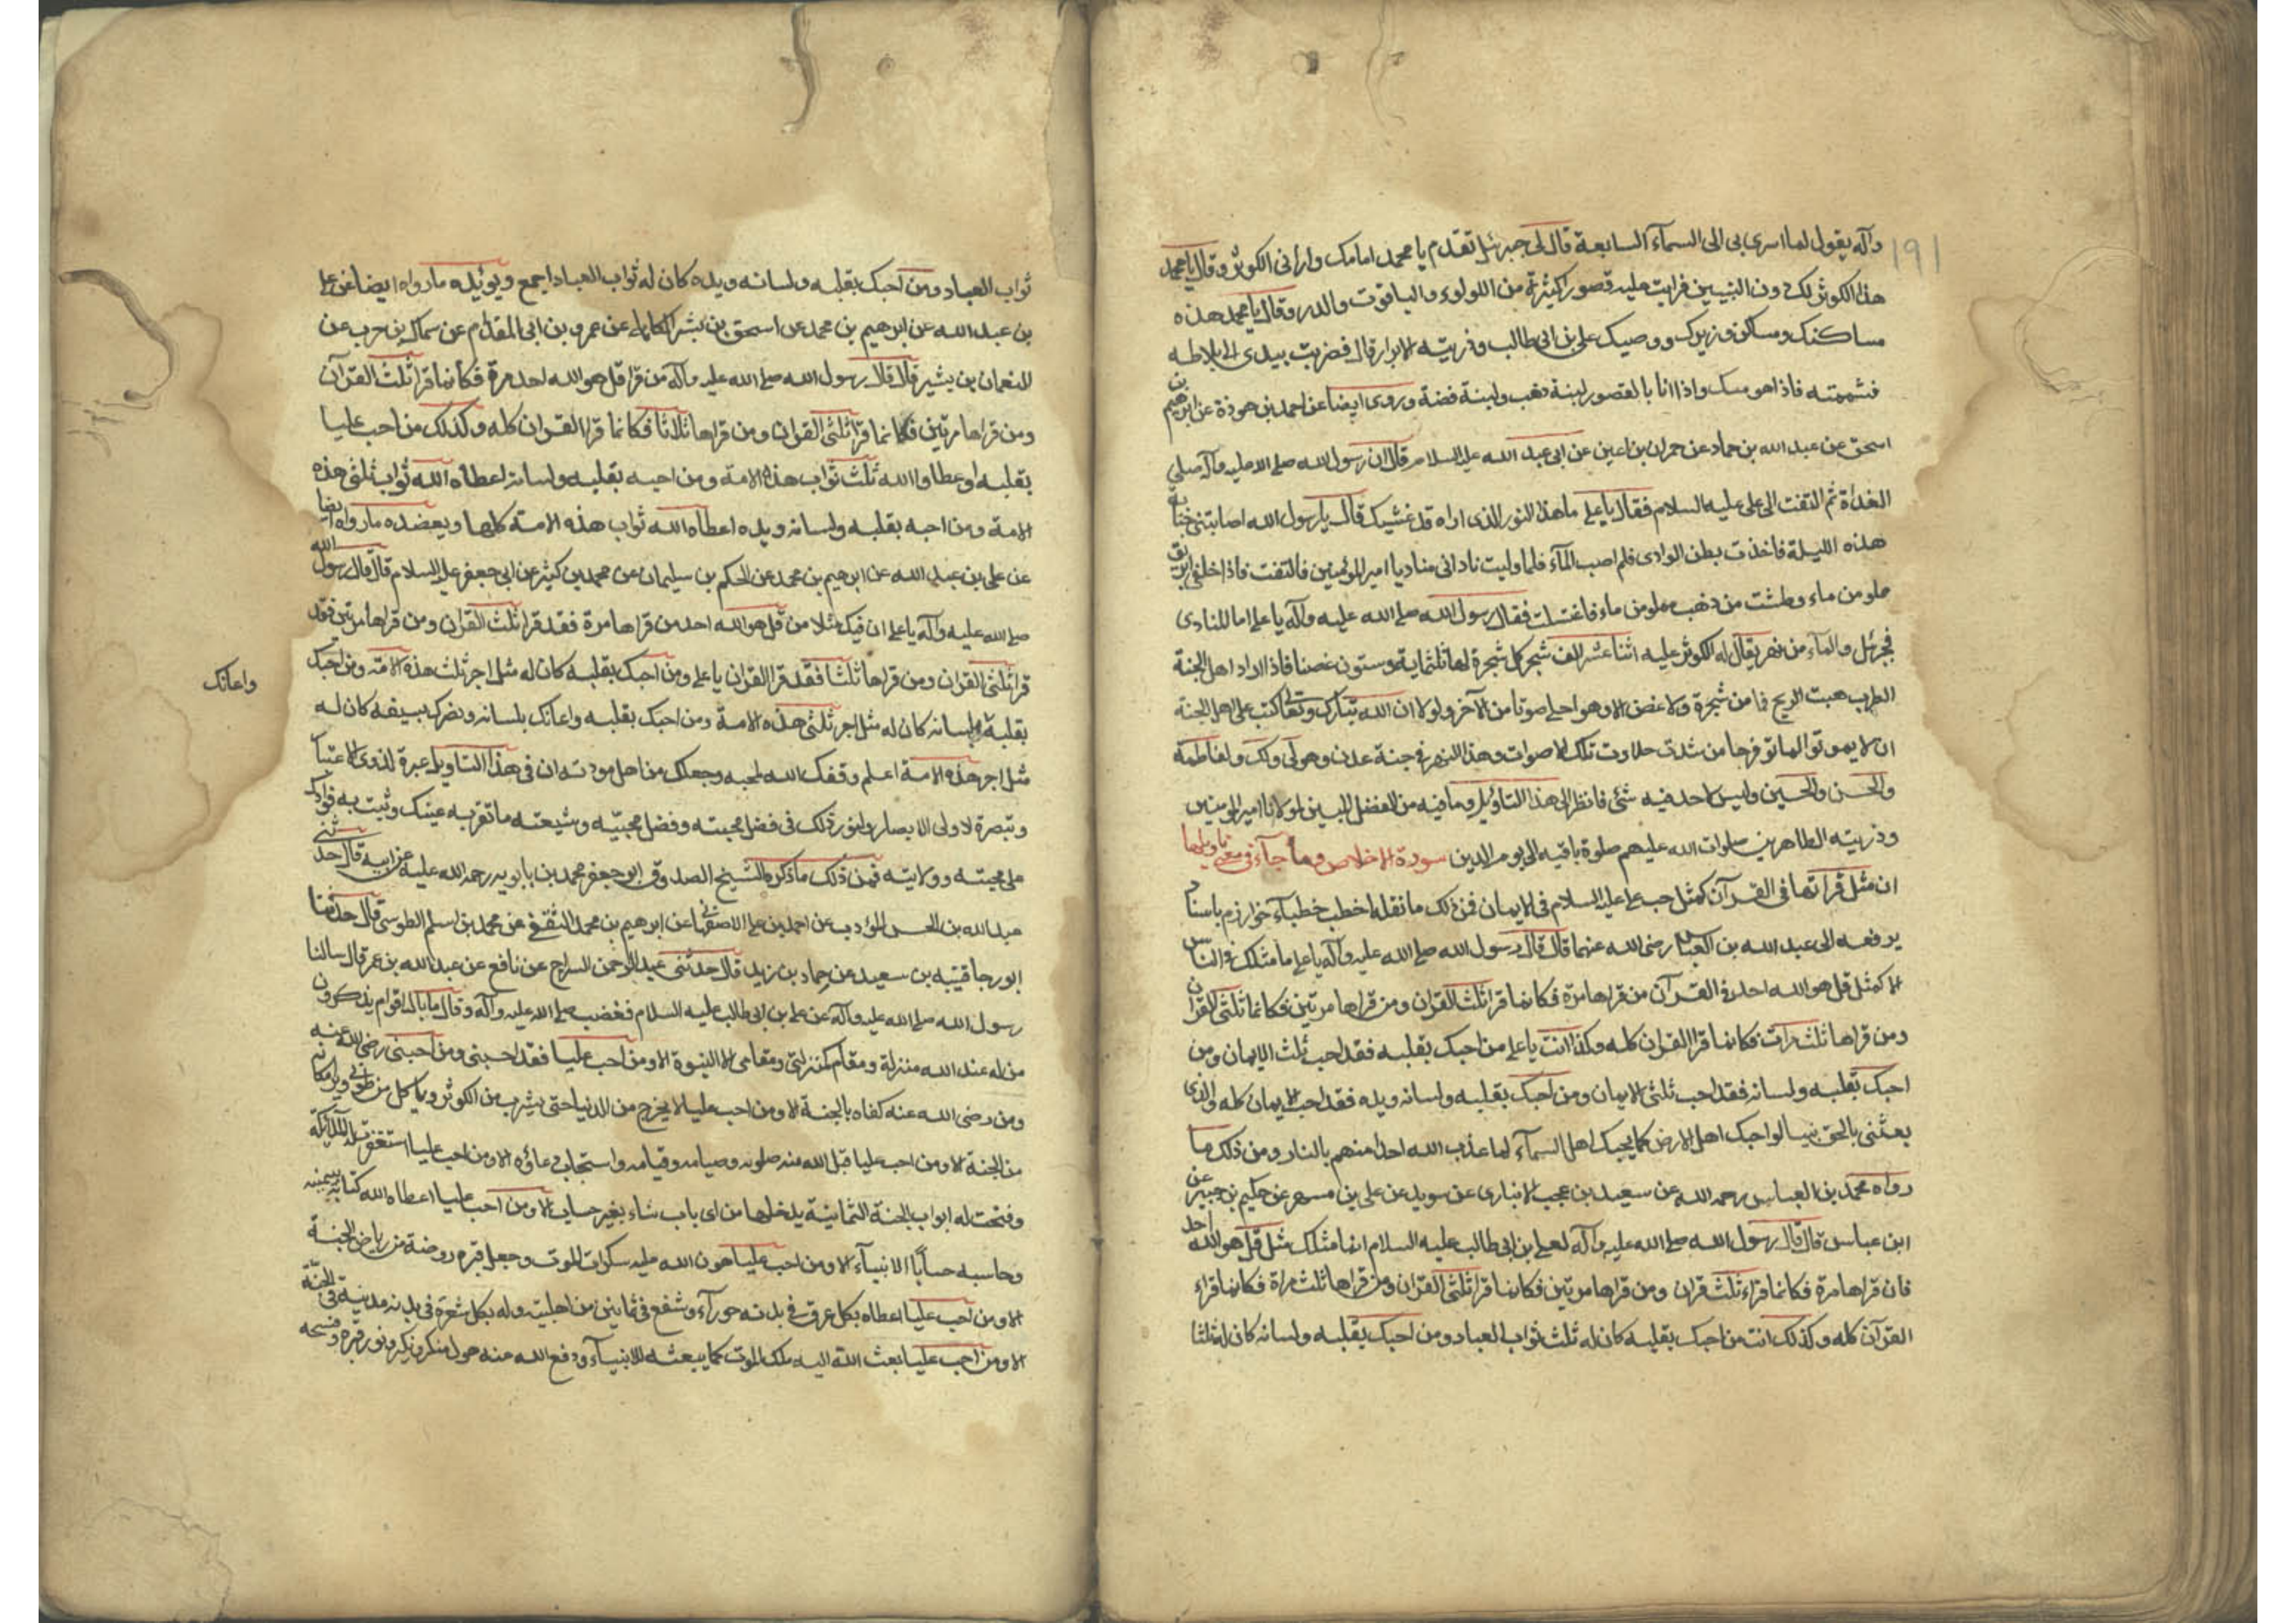 ١٩١
وآله يقول لما اسري بي الى السمآء السابعة قال لي جبرئيل تقدم يا محمد امامك وارانى الكوثر وقال يا محمد
هذا الكوثر لك دون النبيين فرايت عليه قصور كثيرة من اللولوء والياقوت والدر وقال يا محمد هذه
مساكنك ومساكن وزيرك ووصيك على بن ابى طالب وذريته الابرار قال فضربت بيدى الى بلاطه
فشممته فاذا هو مسك واذا انا بالقصور لبنة ذهب ولبنة فضة وروى ايضا عن احمد بن هوذة عن ابرهيم بن
اسحق عن عبد الله بن حماد عن حمران بن اعين عن ابى عبد الله عليه السلام قال ان رسول الله صلى الله عليه وآله صلى
الغداة ثم التفت الى على عليه السلام فقال يا على ما هذا النور الذى اراه قد غشيك قال يا رسول الله اصابتنى جنابة
هذه الليلة فاخذت بطن الوادى فلم اصب المآء فلما وليت نادانى مناد يا امير المؤمنين فالتفت فاذا خلفى ابريق
ملو من ماء وطشت من ذهب مملو من ماء فاغتسلت فقال رسول الله صلى الله عليه وآله يا على اما المنادى
فجبرئل والمآء من نهر يقال له الكوثر عليه اثنا عشر الف شجر كل شجرة لها ثلثماية وستون غصنا فاذا اراد اهل الجنة
الطرب هبت الريح فما من شجرة ولا غصن الا وهو احلى صوتا من الآخر ولولا ان الله تبارك وتعالى كتب على اهل الجنة
ان لا يموتوا لماتوا فرحا من شدت حلاوت تلك الاصوات وهذا النهر فى جنة عدن وهو لى ولك ولفاطمة
والحسن والحسين وليس لاحد فيه شئ فانظر الى هذا التاويل وما فيه من الفضل المبين لمولانا امير المومنين
وذريته الطاهرين صلوات الله عليهم صلوة باقيه الى يوم الدين سورة الاخلاص وما جآء فى معنى تاويلها
ان مثل قرآتها فى القرآن كمثل حب على عليه السلام فى الايمان فمن ذلك ما نقله اخطب خطبآء خوارزم باسناد
يرفعه الى عبد الله بن العباس رضى الله عنهما قال قال رسول الله صلى الله عليه وآله يا على ما مثلك فى الناس
الا كمثل قل هو الله احد فى القرآن من قراها مرة فكانما قرا ثلث القران ومن قراها مرتين فكانما ثلثى القران
ومن قراها ثلث مرات فكانما قرا القران كله وكذا انت يا على من احبك بقلبه فقد احب ثلث الايمان ومن
احبك بقلبه ولسانه فقد احب ثلثى الايمان ومن احبك بقلبه ولسانه ويده فقد احب الايمان كله والذى
بعثنى بالحق نبيا لو احبك اهل الارض كما يحبك اهل السمآء لما عذب الله احدا منهم بالنار ومن ذلك ما
رواه محمد بن العباس رحمه الله عن سعيد بن عجب الانبارى عن سويد عن على بن مسهر عن حكيم بن جبير عن
ابن عباس قال قال رسول الله صلى الله عليه وآله لعلى بن ابى طالب عليه السلام انما مثلك مثل قل هو الله احد
فان قراها مرة فكانما قراء ثلث قران ومن قراها مرتين فكانما قرا ثلثى القران ومن قراها ثلث مراة فكانما قراء
القرآن كله وكذلك انت من احبك بقلبه كان له ثلث ثواب العباد ومن احبك بقلبه ولسانه كان له ثلثا
ثواب العباد ومن احبك بقلبه ولسانه ويده كان له ثواب العباد اجمع ويوئيده ما رواه ايضا عن على
بن عبد الله عن ابرهيم بن محمد عن اسحق بن بشر الكاهلى عن عمرو بن ابى المقدام عن سماك بن حرب عن
النعمان بن بشير قال قال رسول الله صلى الله عليه وآله من قرا قل هو الله احد مرة فكانما قرا ثلث القرآن
ومن قراها مرتين فكانما قرا ثلثى القران ومن قراها ثلاثا فكانما قرا القران كله وكذلك من احب عليا
بقلبه او عطاوا الله ثلث ثواب هذه الامة ومن احبه بقلبه ولسانه اعطاه الله ثواب ثلثى هذه
الامة ومن احبه بقلبه ولسانه ويده اعطاه الله ثواب هذه الامة كلها ويعضده ما رواه ايضا
عن على بن عبد الله عن ابرهيم بن محمد عن الحكم بن سليمان عن محمد بن كثير عن ابى جعفر عليه السلام قال قال رسول الله
صلى الله عليه وآله يا على ان فيك مثلا من قل هو الله احد من قراها مرة فقد قرا ثلث القران ومن قراها مرتين فقد
قرا ثلثى القران ومن قراها ثلثا فقد قرا القران يا على ومن احبك بقلبه كان له مثل اجر ثلث هذه الامة ومن احبك
واعانك
بقلبه ولسانه كان له مثل اجر ثلثى هذه الامة ومن احبك بقلبه واعانك بلسانه ونصرك بسيفه كان له
مثل اجر هذه الامة اعلم وفقك الله لحبه وجعلك من اهل مودته ان فى هذا التاويل عبرة لذوى الاعتبار
وتبصرة لاولى الابصار ولنورد لك فى فضل محبته وفضل محبيه وشيعته ما تقر به عينك ويثبت به فوادك
على محبته وولايته فمن ذلك ما ذكره الشيخ الصدوق ابو جعفر محمد بن بابويه رحمه الله عليه عن ابيه قال حدثنى
عبد الله بن الحسن المؤدب عن احمد بن على الاصفهانى عن ابرهيم بن محمد الثقفى عن محمد بن اسلم الطوسى قال حدثنا
ابو رجا قتيبه بن سعيد عن حماد بن زيد قال حدثنى عبد الرحمن السراج عن نافع عن عبد الله بن عمر قال سالنا
رسول الله صلى الله عليه وآله عن على بن ابى طالب عليه السلام فغضب صلى الله عليه وآله وقال ما بال اقوام يذكرون
من له عند الله منزلة ومقام كمنزلتى ومقامى الا النبوة الا ومن احب عليا فقد احبنى ومن احبنى رضى الله عنه
ومن رضى الله عنه كفاه بالجنة الا ومن احب عليا لا يخرج من الدنيا حتى يشرب من الكوثر وياكل من طوبى ويرى مكانه
من الجنة الا ومن احب عليا قبل الله منه صلوته وصيامه وقيامه واستجاب دعاؤه الا ومن احب عليا استغفرت له الملآئكة
وفتحت له ابواب الجنة الثمانية يدخلها من اى باب شاء بغير حساب الا ومن احب عليا اعطاه الله كتابه بيمينه
وحاسبه حسابا الانبيآء الا ومن احب عليا هون الله عليه سكرات الموت وجعل قبره روضة من رياض الجنة
الا ومن احب عليا اعطاه بكل عرق فى بدنه حورآء وشفع فى ثمانين من اهل بيته وله بكل شعرة فى بدنه مدينة فى الجنة
الا ومن احب عليا بعث الله اليه ملك الموت كما يبعثه للانبيآء ودفع الله عنه هول منكر ونكير ونور قبره وفسحه